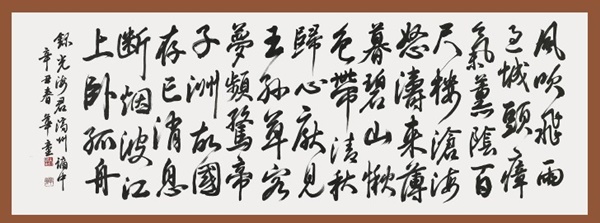 風吹飛雨
過城頭瘴
氣薰陰百
尺樓滄海
怒濤來薄
暮碧山愀
色帶清秋
歸心厭見
王孫草客
夢頻驚帝
子洲故國
存亡消息
断烟波江
上卧孤舟
錄光海君濟州謫中
辛丑春華